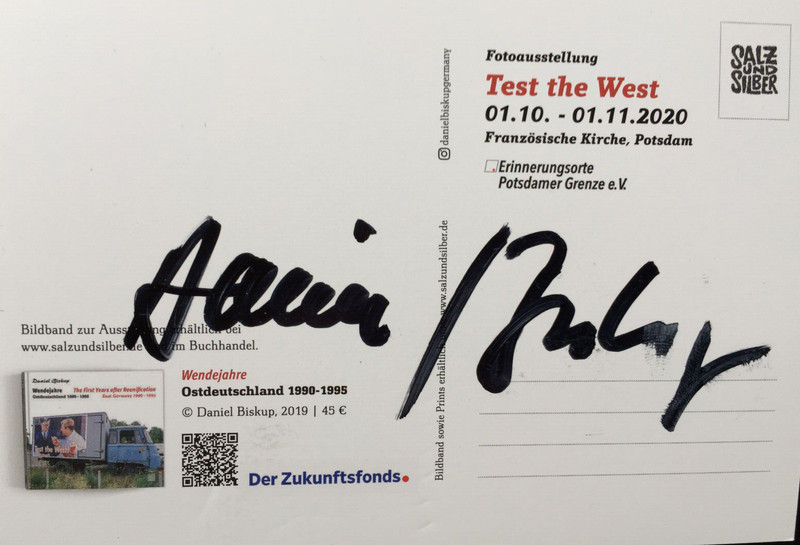 Fotoausstellung
Test the West
01.10. - 01.11.2020
Französische Kirche, Potsdam
Erinnerungsorte
Potsdamer Grenze e.V.
SALZ
UND
SILBER
danielbiskupgermany
Bildband sowie Prints erhältlich www.salzundsilber.de
Daniel Biskup
Bildband zur Ausstellung erhältlich bei
www.salzundsilber.de im Buchhandel.
Daniel Biskup
Wendejahre
Ostdeutschland 1990 - 1995
The First Years after Reunification
East Germany 1990 - 1995
Test the West
Wendejahre
Ostdeutschland 1990-1995
© Daniel Biskup, 2019 | 45 €
Der Zukunftsfonds.